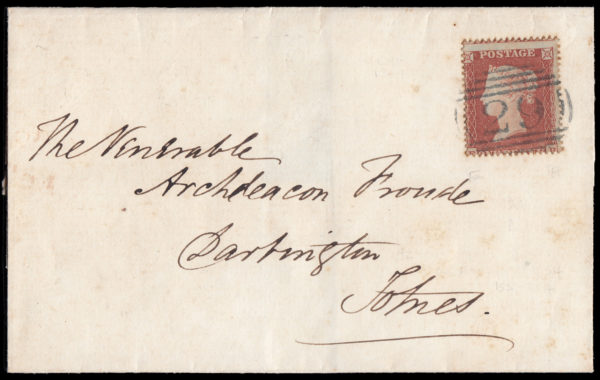 POSTAGE
29
The Venerable
Archdeacon Froude
Dartington
Totnes.